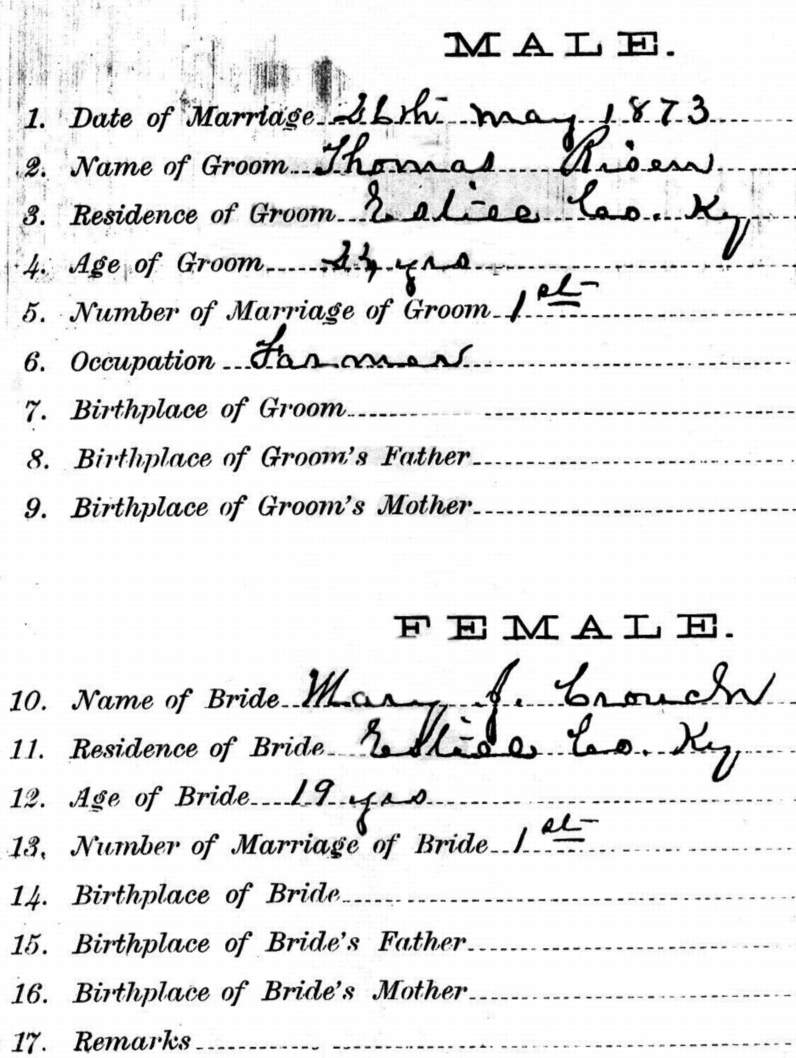 MALE.
1. Date of Marriage 26th May 1873
2. Name of Groom Thomas Risen
3. Residence of Groom Estill Co. Ky
4. Age of Groom yrs
5. Number of Marriage of Groom 1st
6. Occupation Farmer
7. Birthplace of Groom
8. Birthplace of Groom's Father
9. Birthplace of Groom's Mother
FEMALE.
10. Name of Bride Mary J. Crouch
11. Residence of Bride Estill Co. Ky
12. Age of Bride 19 yrs
13. Number of Marriage of Bride 1st
14. Birthplace of Bride
15. Birthplace of Bride's Father
16. Birthplace of Bride's Mother
17. Remarks